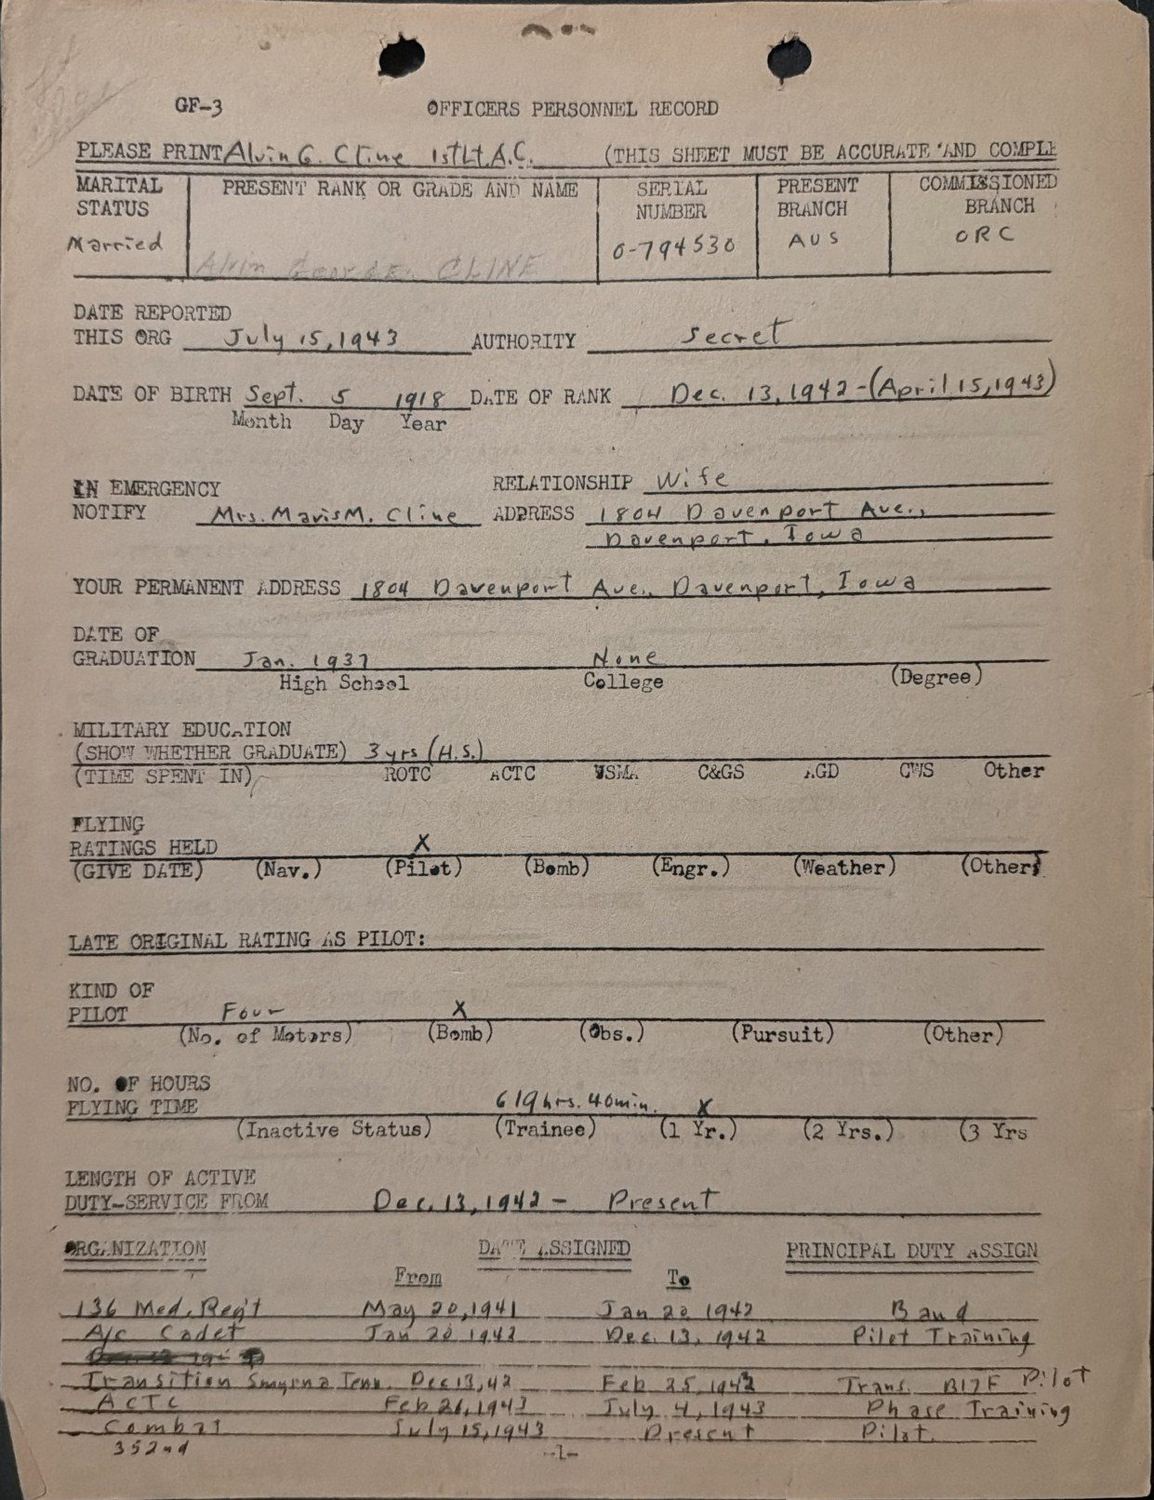 GF-3 OFFICERS PERSONNEL RECORD
PLEASE PRINT Alvin G. Cline 1st Lt. A.C. (THIS SHEET MUST BE ACCURATE AND COMPLE
MARITAL PRESENT RANK OR GRADE AND NAME SERIAL PRESENT COMMISSIONED
STATUS NUMBER BRANCH BRANCH
Married O-794530 AUS ORC
Alvin George CLINE
DATE REPORTED
THIS ORG July 15, 1943 AUTHORITY Secret
DATE OF BIRTH Sept. 5 1918 DATE OF RANK Dec. 13, 1942-(April 15, 1943)
Month Day Year
IN EMERGENCY RELATIONSHIP Wife
NOTIFY Mrs. Mavis M. Cline ADDRESS 1804 Davenport Ave.,
Davenport, Iowa
YOUR PERMANENT ADDRESS 1804 Davenport Ave., Davenport, Iowa
DATE OF
GRADUATION Jan. 1937 None
High School College (Degree)
MILITARY EDUCATION
(SHOW WHETHER GRADUATE) 3 yrs (H.S.)
(TIME SPENT IN) ROTC ACTC USMA C&GS AGD CWS Other
FLYING
RATINGS HELD X
(GIVE DATE) (Nav.) (Pilot) (Bomb) (Engr.) (Weather) (Other)
LATE ORIGINAL RATING AS PILOT:
KIND OF
PILOT Four X
(No. of Motors) (Bomb) (Obs.) (Pursuit) (Other)
NO. OF HOURS
FLYING TIME 619 hrs. 40 min. X
(Inactive Status) (Trainee) (1 Yr.) (2 Yrs.) (3 Yrs
LENGTH OF ACTIVE
DUTY-SERVICE FROM Dec. 13, 1942 - Present
ORGANIZATION DATE ASSIGNED PRINCIPAL DUTY ASSIGN
From To
136 Med. Reg't May 20, 1941 Jan 20 1942 Band
A/c Cadet Jan 20 1942 Dec. 13, 1942 Pilot Training
Transition Smyrna Tenn. Dec 13, 42 Feb 25, 1943 Trans. B17F Pilot
ACTC Feb 26, 1943 July 4, 1943 Phase Training
Combat July 15, 1943 Present Pilot.
352nd
-1-